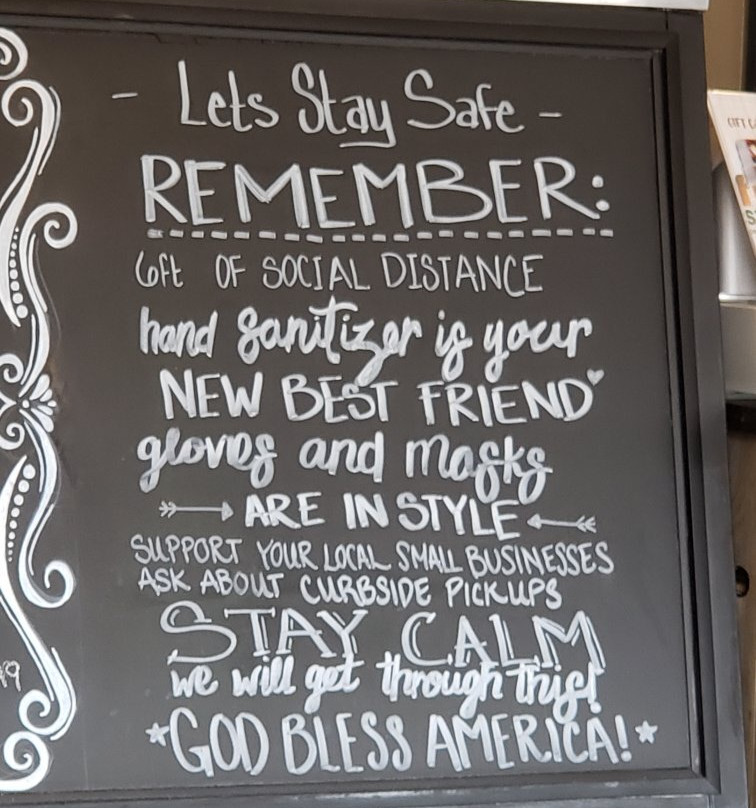 - Lets Stay Safe -
REMEMBER:
6ft OF SOCIAL DISTANCE
hand sanitizer is your
NEW BEST FRIEND
gloves and masks
ARE IN STYLE
SUPPORT YOUR LOCAL SMALL BUSINESSES
ASK ABOUT CURBSIDE PICKUPS
STAY CALM
we will get through this!
*GOD BLESS AMERICA!*